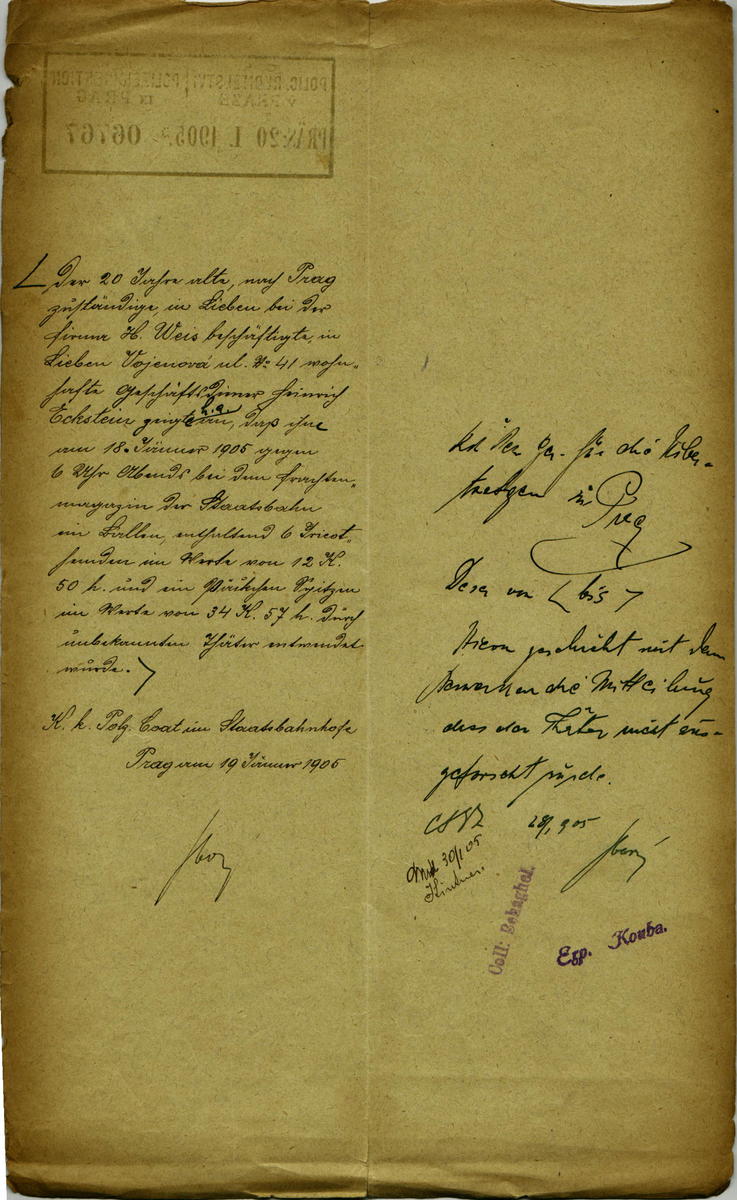 POLIC. ŘEDITELSTVÍ POLIZEIDIREKTION
V PRAZE IN PRAG
PRÄS: 20 I. 1905 06767
Der 20 Jahre alte, nach Prag
zuständige, in Lieben bei der
Firma H. Weis beschäftigte, in
Lieben Vojenová ul. No 41 wohn„
hafte Geschäftsdiener Heinrich
Eckstein zeigte h.a. an, daß ihm
am 18. Jänner 1905 gegen
6 Uhr Abends bei dem Frachten„
magazin der Staatsbahn
ein Ballen, enthaltend 6 Tricot„
hemden im Werte von 12 K.
50 h. und ein Päckchen Spitzen
im Werte von 34 K. 57 h. durch
unbekannten Thäter entwendet
wurde.
K. k. Polz. Coat im Staatsbahnhofe
Prag am 19 Jänner 1905
Ger. für die Über-
in Prag
von bis
Hievon geschieht mit dem
Bemerken die Mitteilung
dass der Thäter nicht aus-
geforscht wurde.
28/1 905
30/1 05
Coll: Behaghel.
Exp. Kouba.